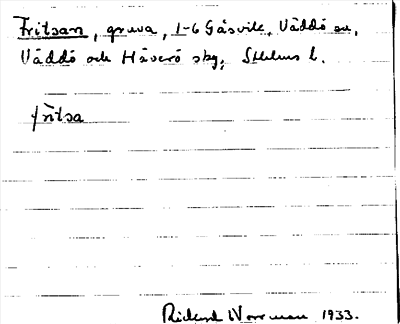 Fritsan, gruva, 1-6 Gåsvik, Väddö sn,
Väddö och Häverö skg, Sthlms l.
fritsa
Rickard Norrman 1933.